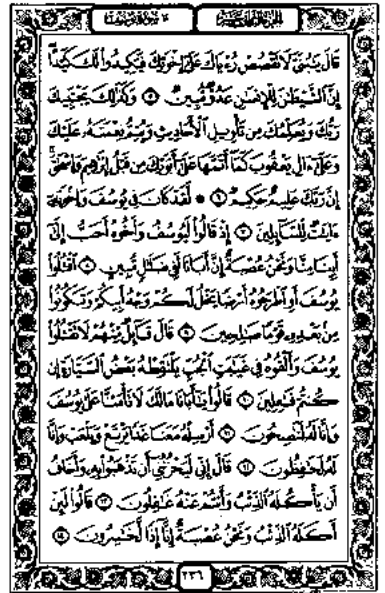 سورة يوسف
قَالَ يَٰبُنَىَّ لَا تَقْصُصْ رُءْيَاكَ عَلَىٰٓ إِخْوَتِكَ فَيَكِيدُوا۟ لَكَ كَيْدًا
إِنَّ ٱلشَّيْطَٰنَ لِلْإِنسَٰنِ عَدُوٌّ مُّبِينٌ ۝٥ وَكَذَٰلِكَ يَجْتَبِيكَ
رَبُّكَ وَيُعَلِّمُكَ مِن تَأْوِيلِ ٱلْأَحَادِيثِ وَيُتِمُّ نِعْمَتَهُۥ عَلَيْكَ
وَعَلَىٰٓ ءَالِ يَعْقُوبَ كَمَآ أَتَمَّهَا عَلَىٰٓ أَبَوَيْكَ مِن قَبْلُ إِبْرَٰهِيمَ وَإِسْحَٰقَ
إِنَّ رَبَّكَ عَلِيمٌ حَكِيمٌ ۝٦ ۞ لَّقَدْ كَانَ فِى يُوسُفَ وَإِخْوَتِهِۦٓ
ءَايَٰتٌ لِّلسَّآئِلِينَ ۝٧ إِذْ قَالُوا۟ لَيُوسُفُ وَأَخُوهُ أَحَبُّ إِلَىٰٓ
أَبِينَا مِنَّا وَنَحْنُ عُصْبَةٌ إِنَّ أَبَانَا لَفِى ضَلَٰلٍ مُّبِينٍ ۝٨ ٱقْتُلُوا۟
يُوسُفَ أَوِ ٱطْرَحُوهُ أَرْضًا يَخْلُ لَكُمْ وَجْهُ أَبِيكُمْ وَتَكُونُوا۟
مِنۢ بَعْدِهِۦ قَوْمًا صَٰلِحِينَ ۝٩ قَالَ قَآئِلٌ مِّنْهُمْ لَا تَقْتُلُوا۟
يُوسُفَ وَأَلْقُوهُ فِى غَيَٰبَتِ ٱلْجُبِّ يَلْتَقِطْهُ بَعْضُ ٱلسَّيَّارَةِ إِن
كُنتُمْ فَٰعِلِينَ ۝١٠ قَالُوا۟ يَٰٓأَبَانَا مَا لَكَ لَا تَأْمَ۫نَّا عَلَىٰ يُوسُفَ
وَإِنَّا لَهُۥ لَنَٰصِحُونَ ۝١١ أَرْسِلْهُ مَعَنَا غَدًا يَرْتَعْ وَيَلْعَبْ وَإِنَّا
لَهُۥ لَحَٰفِظُونَ ۝١٢ قَالَ إِنِّى لَيَحْزُنُنِىٓ أَن تَذْهَبُوا۟ بِهِۦ وَأَخَافُ
أَن يَأْكُلَهُ ٱلذِّئْبُ وَأَنتُمْ عَنْهُ غَٰفِلُونَ ۝١٣ قَالُوا۟ لَئِنْ
أَكَلَهُ ٱلذِّئْبُ وَنَحْنُ عُصْبَةٌ إِنَّآ إِذًا لَّخَٰسِرُونَ ۝١٤
٢٣٦